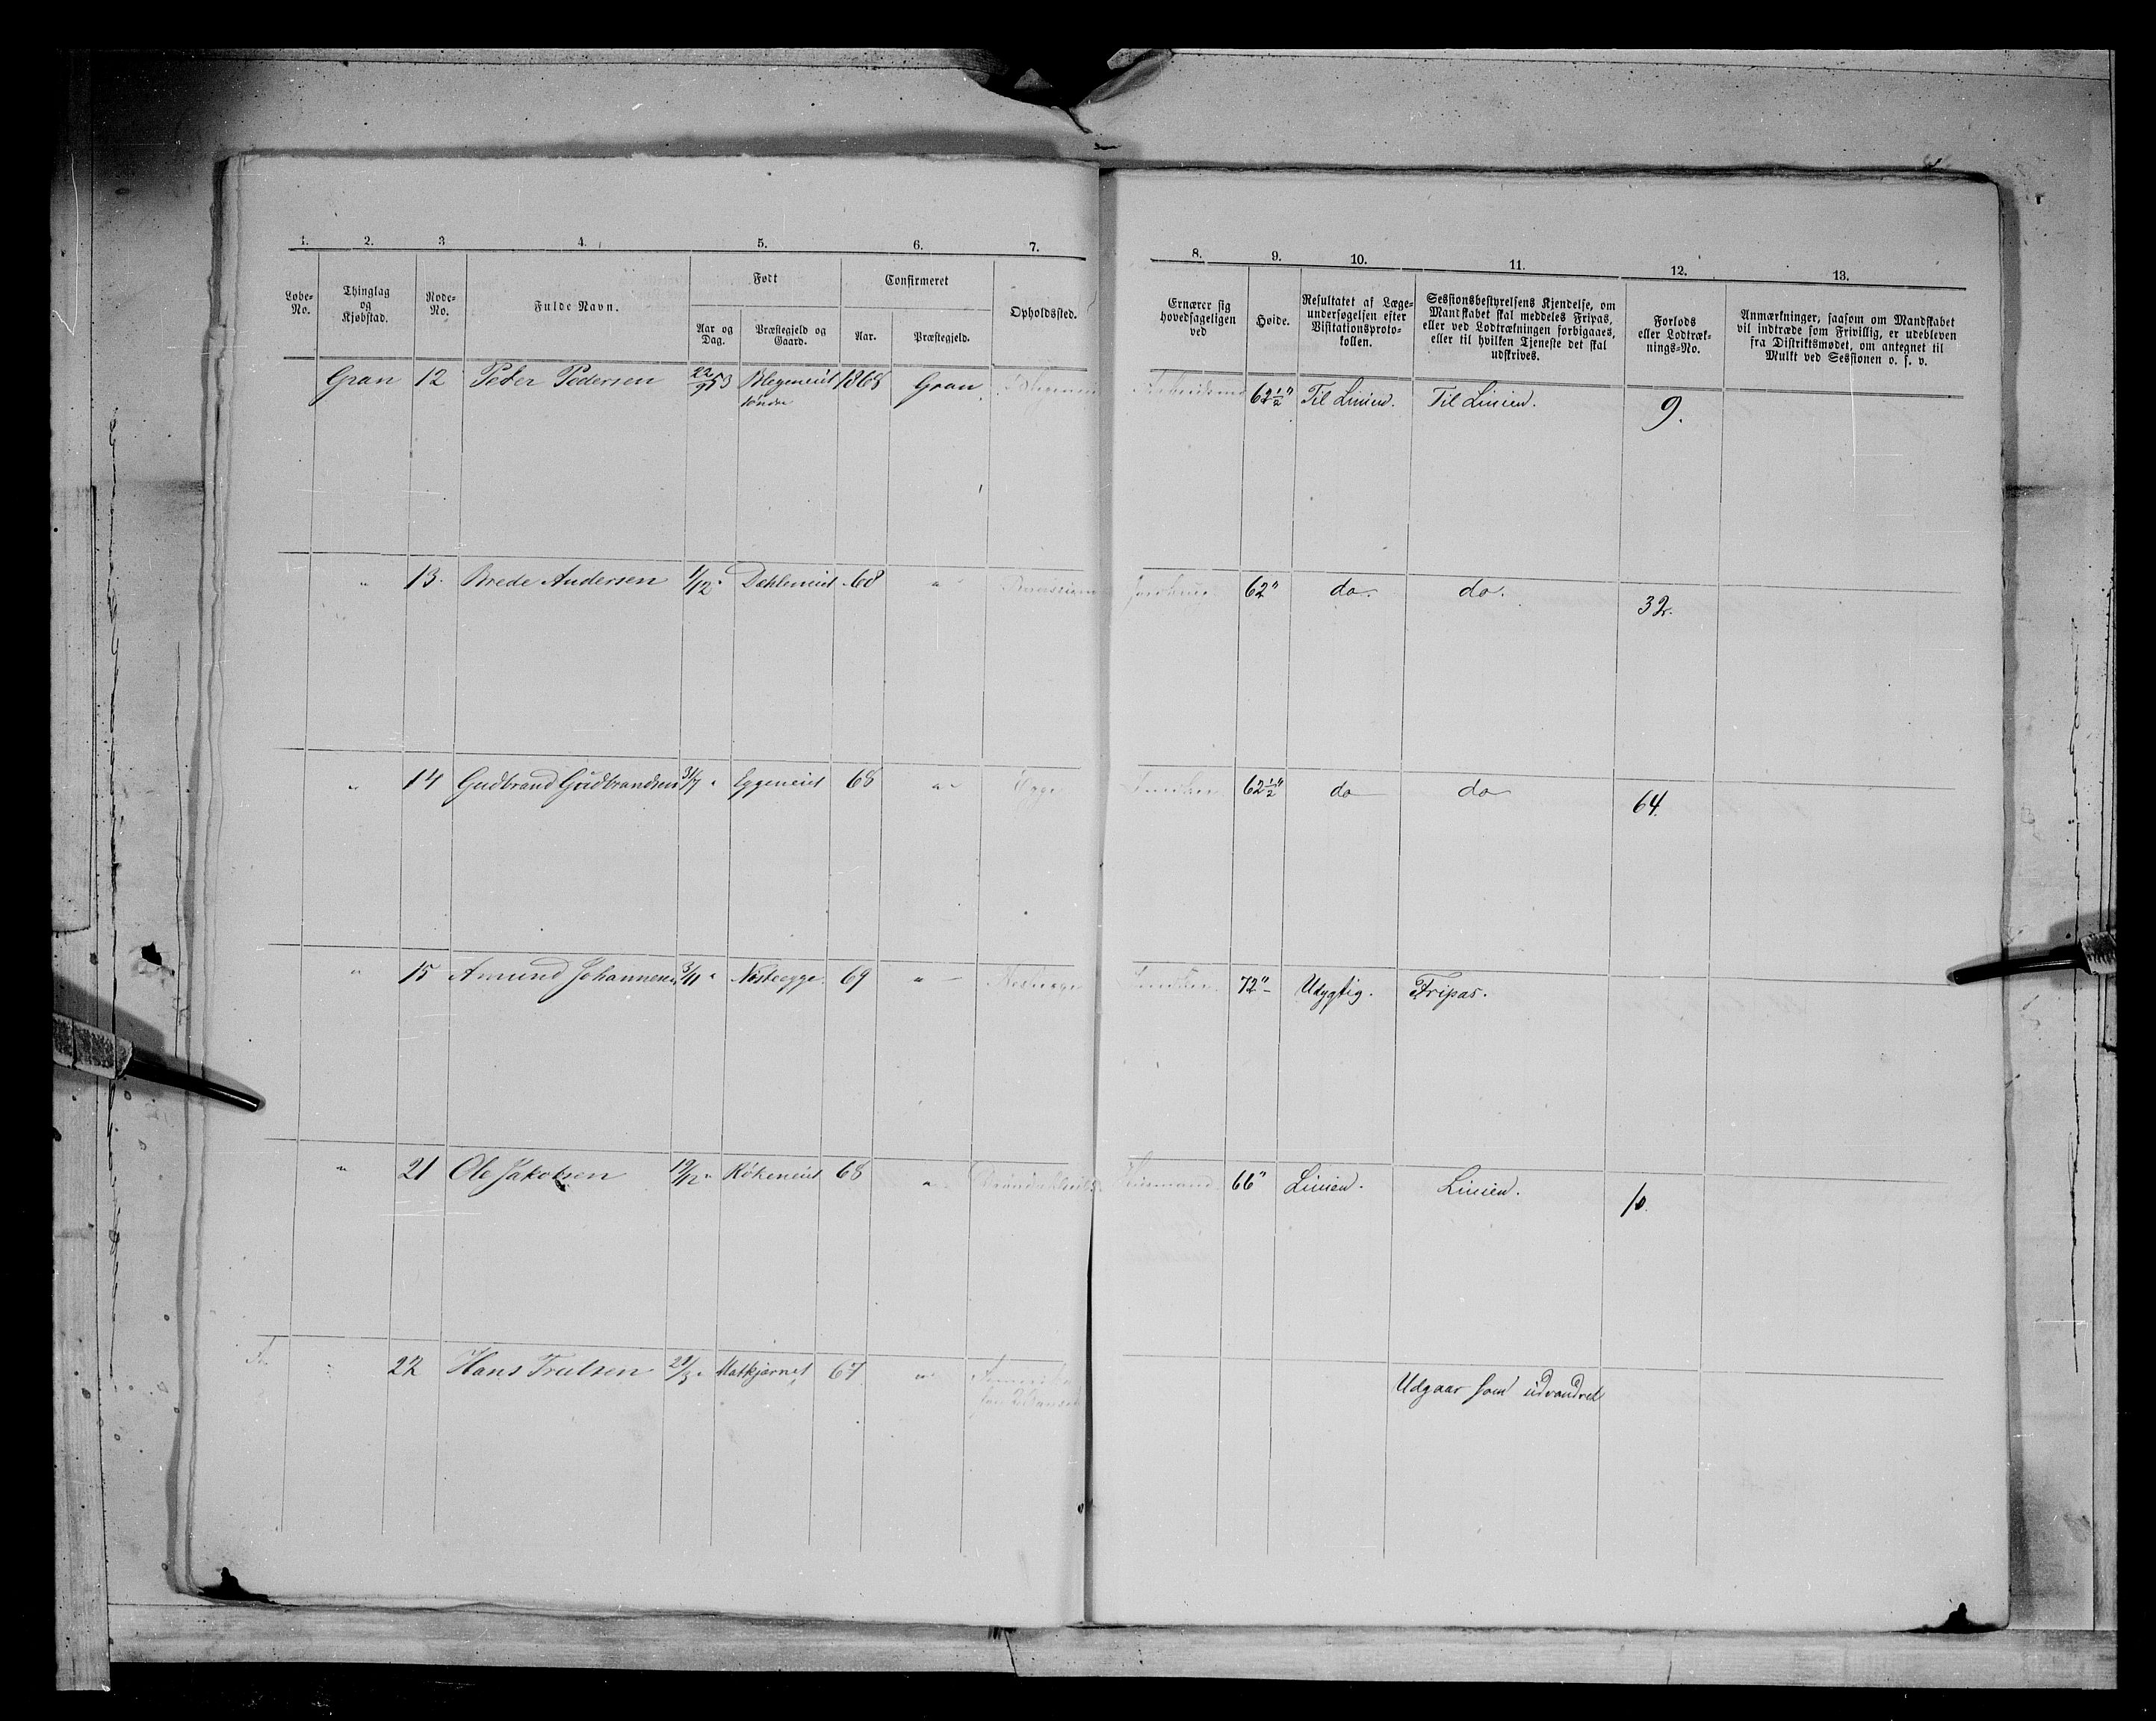 1. 2. 3 4. 5. 6. 7. 8. 9. 10. 11. 12. 13.
Løbe-No.
Thinglag og Kjøbstad.
Rode-No.
Fulde Navn.
Født
Aar og Dag.
Præstegjeld og Gaard.
Confirmeret
Aar.
Præstegjeld.
Opholdssted.
Ernærer sig hovedsageligen ved
Høide.
Resultatet af Læge-
undersøgelsen efter
Visitationsproto-
kollen.
Sessionsbestyrelsens Kjendelse, om
Mandskabet skal meddeles Fripas,
eller ved Lodtrækningen forbigaaes,
eller til hvilken Tjeneste det skal
udskrives.
Forlods
eller Lodtræk-
nings-No.
Anmærkninger, saasom om Mandskabet
vil indtræde som Frivillig, er udebleven
fra Distriktsmødet, om antegnet til
Mulkt ved Sessionen o. s. v.
Gran 12 Peder Pedersen 22/9 53 Blegeneiet 1868 Gran 62½" Til Linien. Til Linien. 9.
søndre
" 13. Brede Andersen 1/12 " Dehleneiet 68 " 62" do. do. 32.
" 14 Gudbrand Gudbrandsen 31/7 " Eggeneiet 68 " Egge 62½" do do 64.
" 15 Amund Johannesen 3/11 " Næsteegge 69 " 72" Udygtig. Fripas.
" 21 Ole Jakobsen 19/12 " Kökeneiet 68 " Huusmand 66" Linien. Linien. 10.
" 22 Hans Trulsen 29/3 " 67 " Udgaar som udvandret